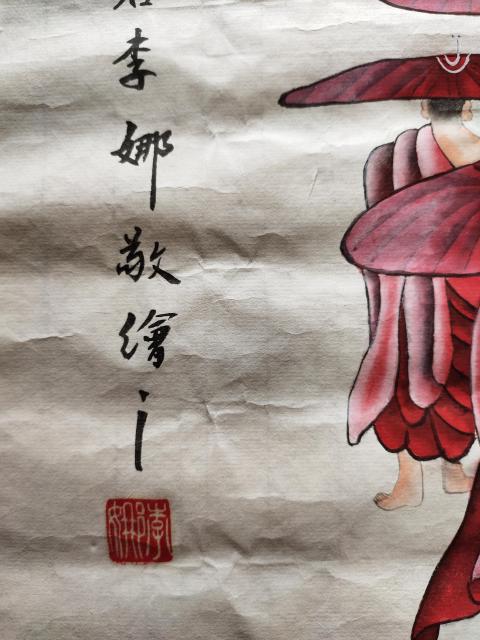 李娜敬繪之
李娜